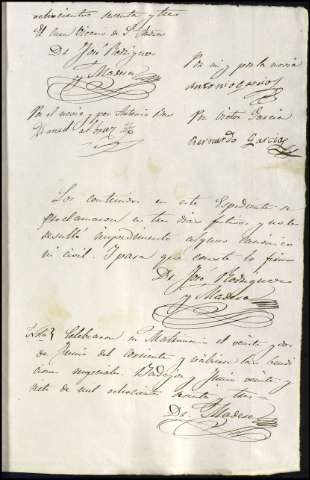 ochocientos sesenta y tres
El Cura Ecónomo de S. Andres
Dr. José Rodriguez
y Madera
Por mi, y por la novia
Por el novio, y por Antonio
Por Victor Garcia
Bernardo Garcia
Los contenidos en este Espediente se
proclamaron en tres dias festivos, y no
resultó impedimento alguno canónico
ni civil. Y para que conste lo firmo
Dr. José Rodriguez
y Madera
Celebraron su Matrimonio el veinte y dos
de Junio del corriente y recibieron las bendi
ciones nupciales. Badajoz Junio veinte y
siete de mil ochocientos sesenta y tres
Dr. Madera